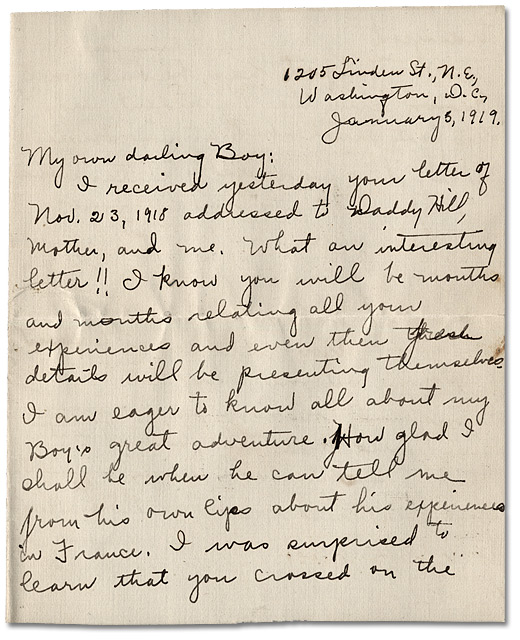 1205 Linden St., N.E.,
Washington, D.C.,
January 8, 1919.
My own darling Boy:
I received yesterday your letter of
Nov. 23, 1918 addressed to Daddy Hill,
Mother, and me. What an interesting
letter!! I know you will be months
and months relating all your
experiences and even then fresh
details will be presenting themselves.
I am eager to know all about my
Boy's great adventure. How glad I
shall be when he can tell me
from his own lips about his experiences
in France. I was surprised to
learn that you crossed on the